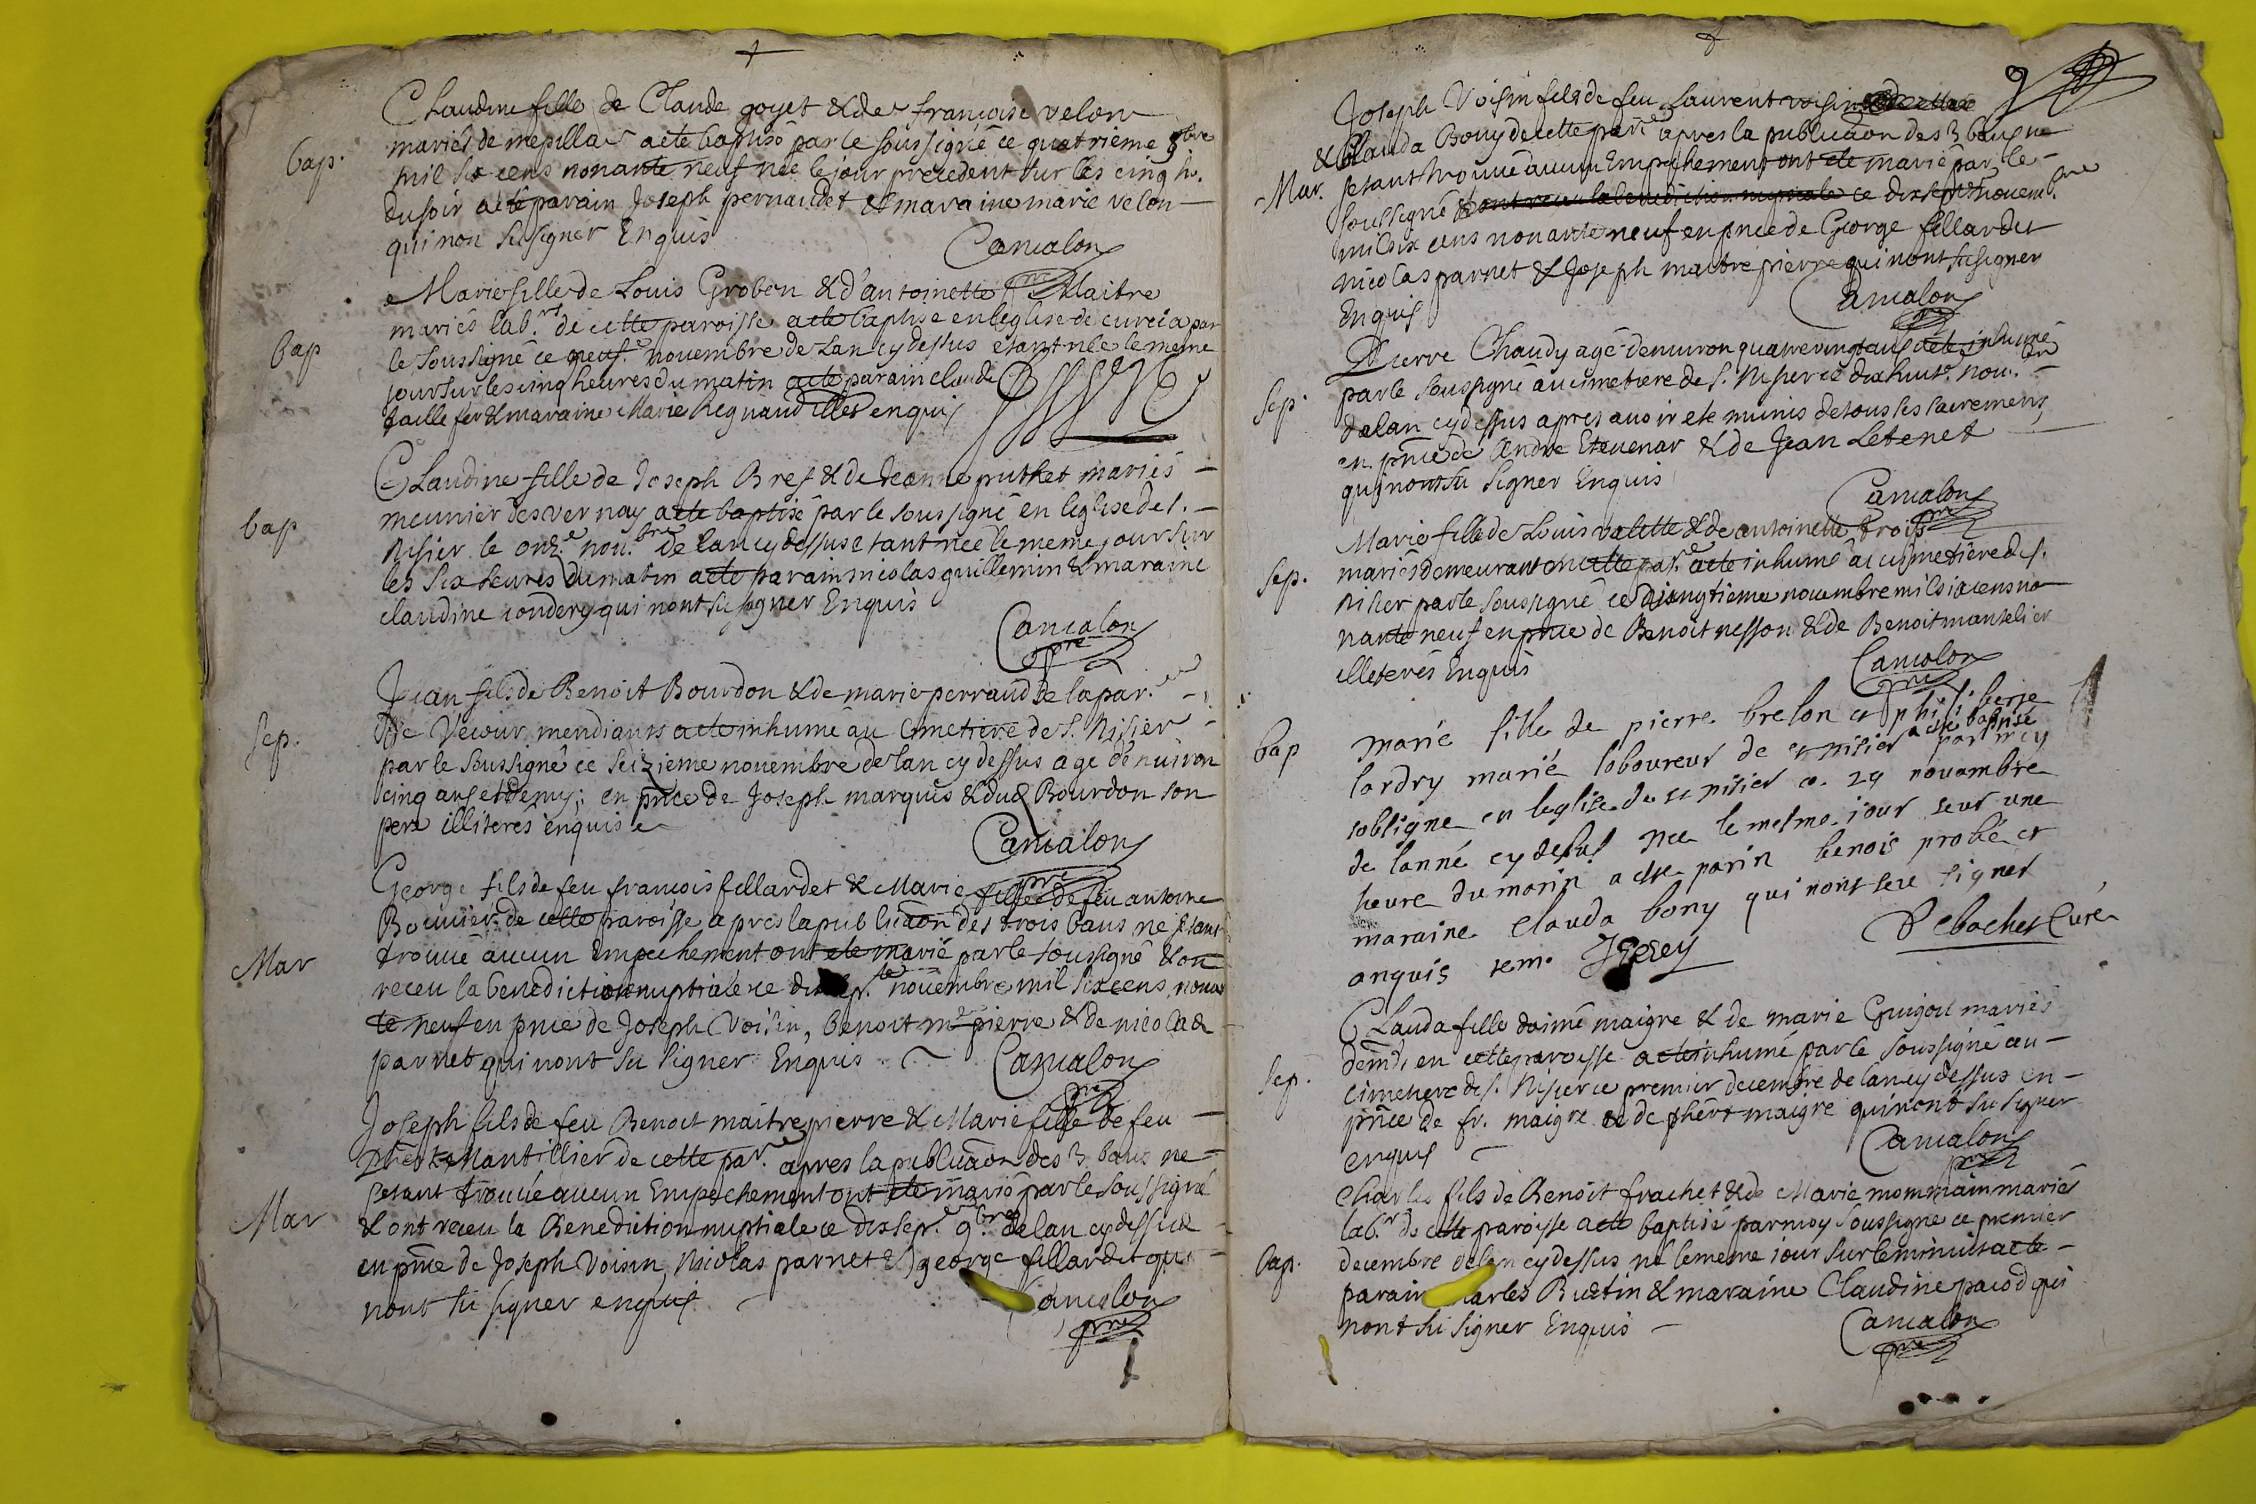 Claudine fille de Claude goyet & de françoise velon
bap.
mariés de mepillac a ete baptisé par le soussigné ce quatrieme 9bre
mil six cens nonante neuf née le jour precedent sur les cinq h.
du soir a ete parain Joseph pernaudet & maraine marie velon
qui non su signer Enquis
Camalon pre
Marie fille de Louis Grobon & d'antoinette Maitre
bap
mariés lab.rs de cette paroisse a ete baptise en leglise de curcia par
le soussigné ce neuf.e novembre de Lan cy dessus etant née le meme
jour sur les cinq heures du matin a ete parain claude
taille fer & maraine Marie Regnaud illes enquis
Claudine fille de Joseph Bref & de Jeanne puthet mariés
bap
meunier des vernay a ete baptisé par le soussigné en leglise de s.
Nisier le onz.e nou.bre de lan cy dessus etant née le meme jour sur
les six heures du matin a ete parain nicolas guillemin & maraine
claudine condery qui nont su signer Enquis
Camalon pre
Jean fils de Benoit Bourdon & de marie perraud de la par.
Sep.
de Vecour mendiants a ete inhumé au Cimetiere de S. Nisier
par le soussigné ce seizieme novembre de lan cy dessus agé denuiron
cinq ans et demy; en pnce de Joseph marquis & dud Bourdon son
pere illiterés enquis
Camalon pre
George fils de feu francois fillardet & Marie fille de feu antoine
Bouvier de cette paroisse apres la publicâon des trois bans ne setant
Mar
trouué aucun Empechement ont ete marié par le soussigné & ont
receu la benediction nuptiale ce dix sep.te novembre mil six cens nonan
te neuf en pnce de Joseph Voisin, benoit m.e pierre & de nicolas
parnet qui nont su signer Enquis
Camalon pre
Joseph fils de feu Benoit maitrepierre & Marie fille de feu
phert Mantillier de cette par. apres la publicâon des 3 bans ne
setant trouué aucun Empechement ont ete mariés par le soussigné
Mar
& ont receu la Benediction nuptiale ce dix sep. 9bre de lan cy dessus
en pnce de Joseph Voisin, Nicolas parnet & george fillardet qui
nont su signer enquis
Camalon pre
9
Joseph Voisin fils de feu Laurent voisin
& Clauda Bouy de cette par. apres la publicâon des 3 bans ne
Mar.
setant trouué aucun Empechement ont ete marié par le
soussigné & ont receu la benediction nuptiale ce dix sept novem.bre
mil six cens nonante neuf en pnce de George fillardet
nicolas parnet & Joseph maitrepierre qui nont su signer
Enquis
Camalon pre
Pierre Chaudy agé denuiron quatre vingt ans a ete inhumé
Sep.
par le soussigné au cimetiere de S. Nisier ce dix huit.e nou.bre
de lan cy dessus apres auoir ete munis de tous les sacremens
en pnce de Andre Etevenar & de Jean Letenet
qui nont su signer Enquis
Camalon pre
Marie fille de Louis valette & de antoinette brois
Sep.
mariés demeurant en cette par. a ete inhumé au cimetiere de s.
Nisier par le soussigné ce vingtieme novembre mil six cens no
nante neuf en pnce de Benoit nesson & de Benoit mantelier
illeterés Enquis
Camalon pre
marie fille de pierre brelon et philiberte
bap
lardry marié laboureur de st nisier a este baptisé par moy
sobsigne en leglise de st nisier ce 29 novambre
de lanné cy desus nee le mesme jour seur une
heure du matin a este parin benois probé et
maraine clauda bony qui nont seu signer
anquis
Debachet Curé
Clauda fille daimé maigre & de marie Guigou mariés
Sep.
dem.ts en cette paroisse a ete inhumé par le soussigné au
cimetiere de s. Nisier ce premier decembre de lan cy dessus en
pnce de fr. maigre & de phert maigre qui nont su signer
enquis
Camalon pre
Charles fils de Benoit frachet & de Marie mommain mariés
lab.r de cette paroisse a ete baptisé par moy soussigné ce premier
bap.
decembre de lan cy dessus né le meme jour sur le minuit a ete
parain Charles Buetin & maraine Claudine pacod qui
nont su signer Enquis
Camalon pre